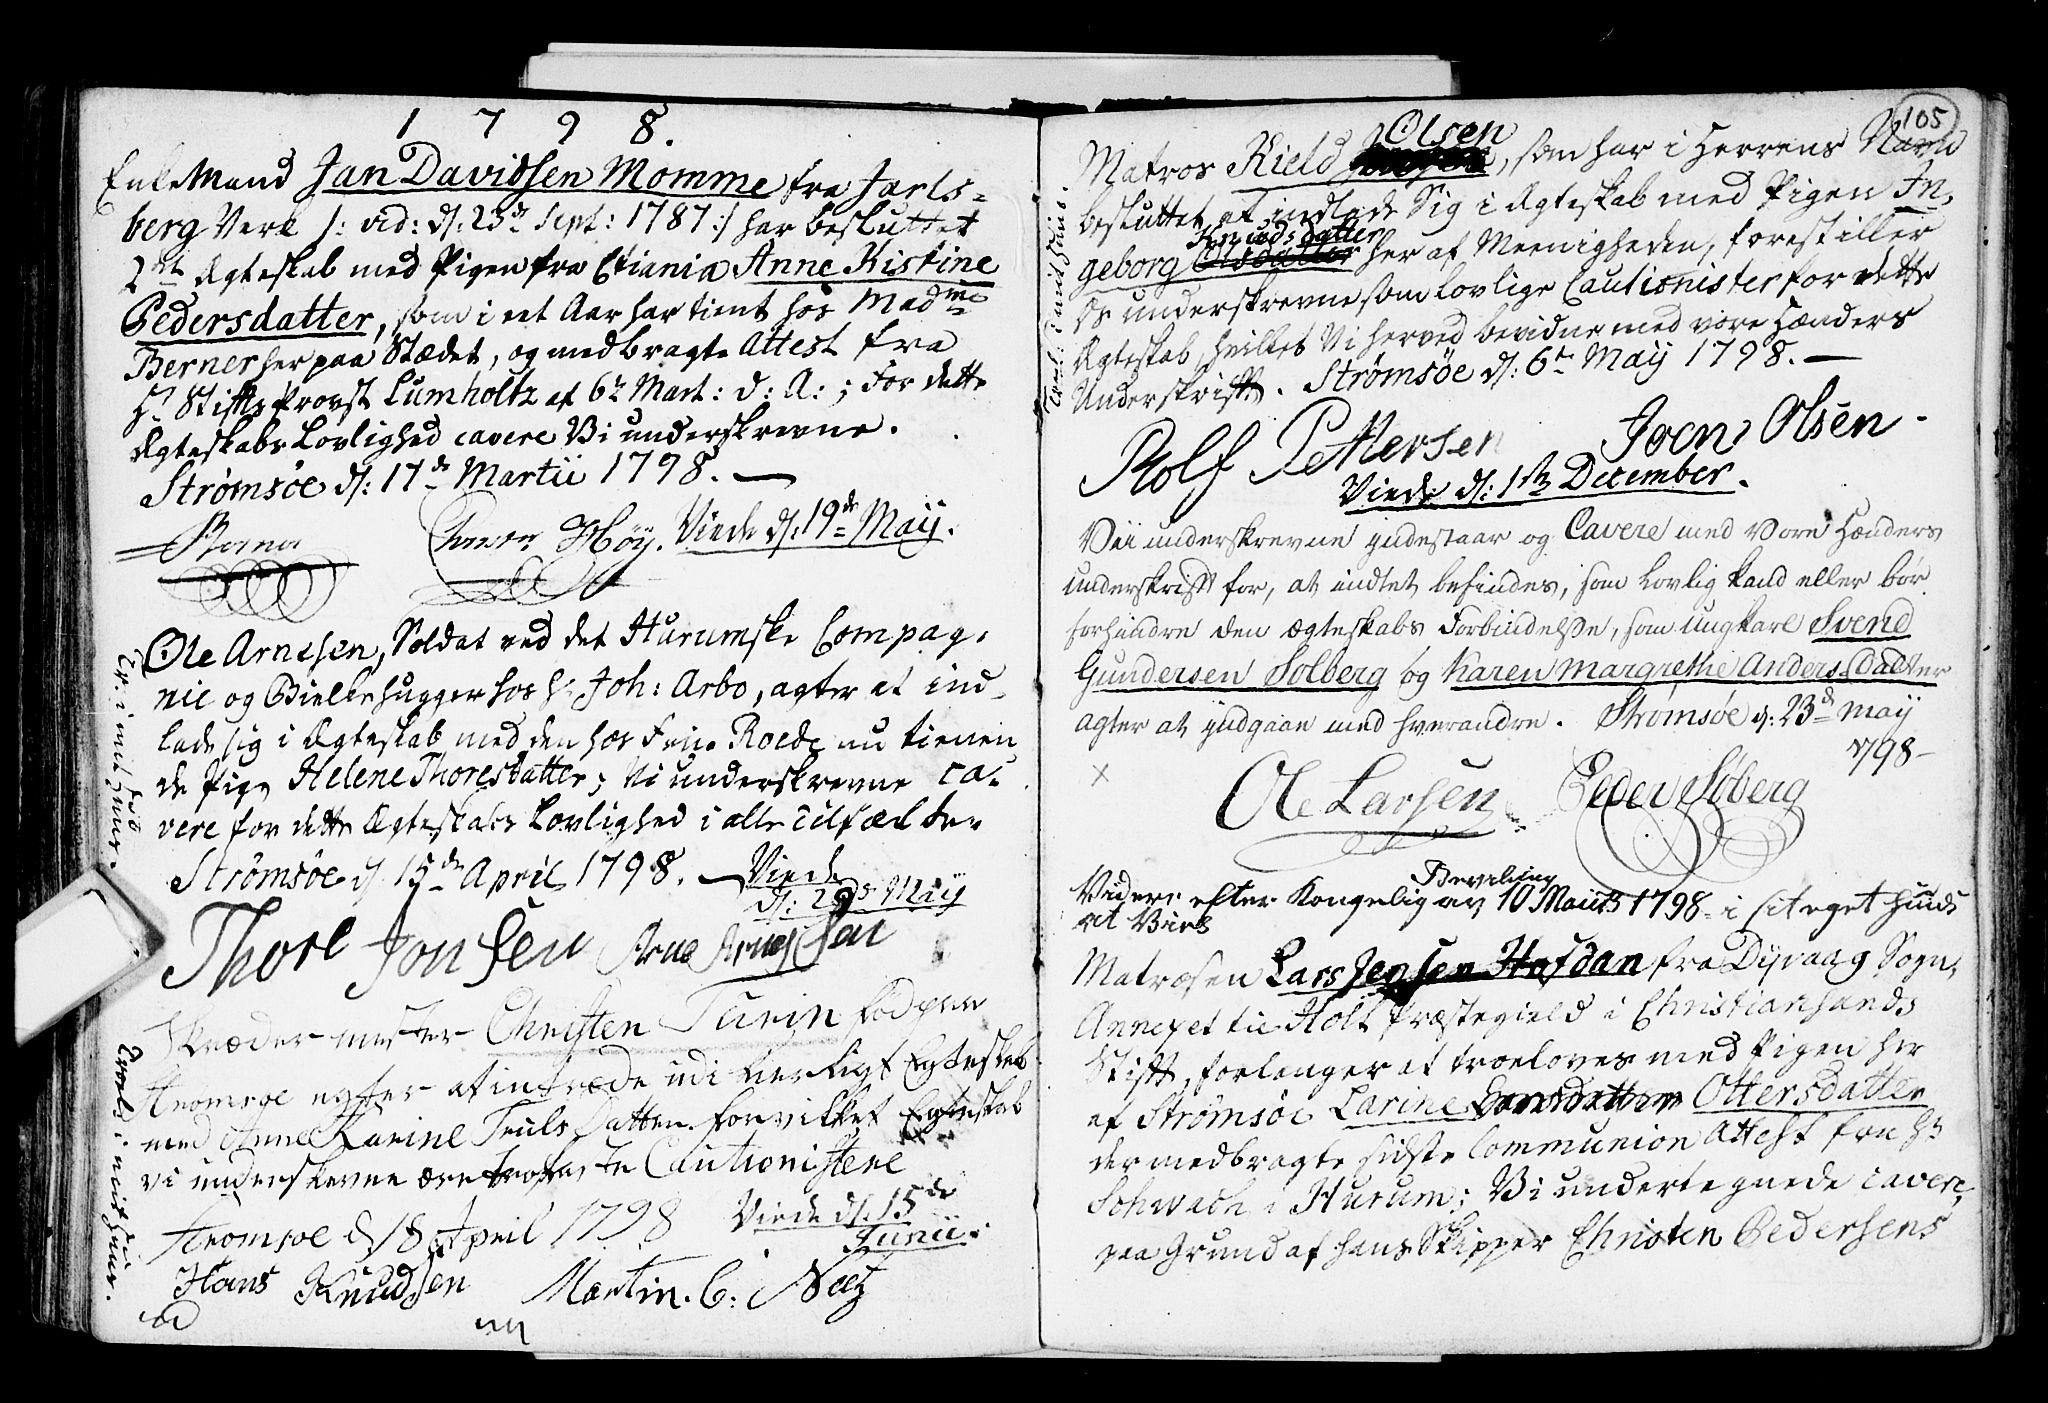 1798.
Enkemand Jan Davidsen Momme fra Jarls-
berg Verk /: vid: d: 23de Sept: 1787 :/ har besluttet
2det Ægteskab med Pigen fra Xtiania Anne Kistine
Pedersdatter, som i eet Aar har tient hos Madme
Berner her paa Stædet, og medbragte Attest fra
Hr Stiftsprovst Lumholtz af 6te Mart: d: A: ; For dette
Ægteskabs Lovlighed cavere Vi underskrevne.
Strømsøe d: 17de Martii 1798. —
Høy. Viede d: 19de Maij.
Ole Arnesen, Soldat ved det Hurumske Compag-
nie og Bielkehugger hos Hr Joh: Arbo, agter at ind-
lade sig i Ægteskab med den hos Frue Roede nu tienen
de Pige Helene Thoresdatter; Vi underskrevne ca-
vere for dette Ægteskabs Lovlighed i alle Tilfælder
Strømsøe d 15de April 1798. — Viede
d: 29de Maij
Tr: i mit Huus.
Thore Jonsen Arne Arnesen
Skræder mester Christen Turin fød paa
Stromsoe agter at intræde udi Ægteskab
med Anne Karine Truls Datter. for vilket Egteskab
vi underskevne ære Cautionistere
Stromsoe d 18 April 1798 Viede d: 15de
Junii.
Troel: i mit Huus.
Hans Knudsen Martin. C: Nætz
105
Matros Kield Olsen, som har i Herrens Navn
besluttet at indlade Sig i Ægteskab med Pigen In-
geborg Knudsdatter her af Meenigheden, forestiller
Os underskrevne som lovlige Cautionister for dette
Ægteskab, hvilket Vi herved bevidne med vore Hænders
Underskrift. Strømsøe d: 6te Maij 1798. —
Troel: i mit Huus.
Rolf Pettersen Joen Olsen.
Viede d: 1ste December.
Vii underskrevne indestaar og Cavere med Vore Hænders
underskrift for, at indtet befindes, som Lovlig kand eller bør
forhindre den ægteskabs Forbindelse, som ungkarl Svend
Gundersen Solberg og Karen Margrethe Anders Datter
agter at indgaae med hverandre. Strømsøe d: 23de May
1798-
x
Ole Larsen Peder Søberg
Vider efter Kongelig Bevilling av 10 Marts 1798 i sit eget Huus
at Viels
Matrosen Lars Jensen Hafdan fra Dÿvaag Sogn,
Annexet til Holt Præstegield i Christiansands
Stift, forlanger at troeloves med Pigen her
af Strømsøe Larine Ottersdatter
der medbragte sidste Communion Attest fra Hr
Schwach i Hurum; Vi undertegnede cavere,
paa Grund af hans Skipper Christen Pedersens